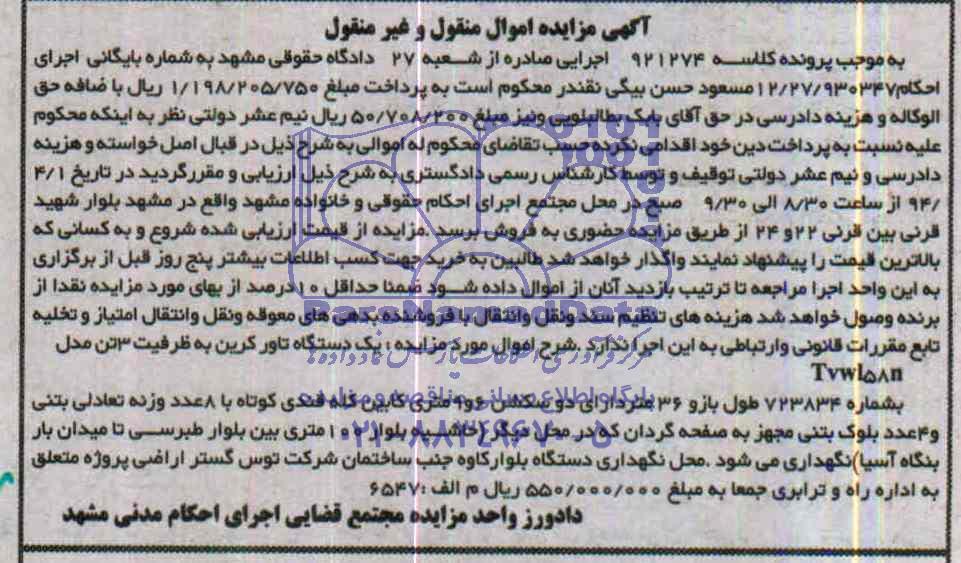 آگهی مزایده اموال منقول و غیر منقول
به موجب پرونده کلاسه ۹۲۱۲۷۴ اجرایی صادره از شعبه ۲۷ دادگاه حقوقی مشهد به شماره بایگانی اجرای
احکام۱۲/۲۷/۹۳۰۳۴۷مسعود حسن بیگی نقندر محکوم است به پرداخت مبلغ ۱/۱۹۸/۲۰۵/۷۵۰ ریال با ضافه حق
الوکاله و هزینه دادرسی در حق آقای بابک بطالبلویی ونیز مبلغ ۵۰/۷۰۸/۲۰۰ ریال نیم عشر دولتی نظر به اینکه محکوم
علیه نسبت به پرداخت دین خود اقدامی نکرده حسب تقاضای محکوم له اموالی به شرح ذیل در قبال اصل خواسته و هزینه
دادرسی و نیم عشر دولتی توقیف و توسط کارشناس رسمی دادگستری به شرح ذیل ارزیابی و مقرر گردید در تاریخ ۴/۱
/۹۴ از ساعت ۸/۳۰ الی ۹/۳۰ صبح در محل مجتمع اجرای احکام حقوقی و خانواده مشهد واقع در مشهد بلوار شهید
قرنی بین قرنی ۲۲و ۲۴ از طریق مزایده حضوری به فروش برسد .مزایده از قیمت ارزیابی شده شروع و به کسانی که
بالاترین قیمت را پیشنهاد نمایند واگذار خواهد شد طالبین به خرید جهت کسب اطلاعات بیشتر پنج روز قبل از برگزاری
به این واحد اجرا مراجعه تا ترتیب بازدید آنان از اموال داده شود ضمنا حداقل ۱۰درصد از بهای مورد مزایده نقدا از
برنده وصول خواهد شد هزینه های تنظیم سند ونقل وانتقال با فروشنده بدهی های معوقه ونقل وانتقال امتیاز و تخلیه
تابع مقررات قانونی وارتباطی به این اجرا ندارد .شرح اموال مورد مزایده : یک دستگاه تاور کرین به ظرفیت ۳تن مدل
Tvwl۵۸n
بشماره ۷۲۳۸۳۴ طول بازو ۳۶ متر دارای دو سکشن ۶و۹ متری کابین کله قندی کوتاه با ۸عدد وزنه تعادلی بتنی
و۴عدد بلوک بتنی مجهز به صفحه گردان که در محل دیگر (حاشیه بلوار ۱۰۰ متری بین بلوار طبرسی تا میدان بار
بنگاه آسیا)نگهداری می شود .محل نگهداری دستگاه بلوارکاوه جنب ساختمان شرکت توس گستر اراضی پروژه متعلق
به اداره راه و ترابری جمعا به مبلغ ۵۵۰/۰۰۰/۰۰۰ ریال م الف :۶۵۴۷
دادورز واحد مزایده مجتمع قضایی اجرای احکام مدنی مشهد